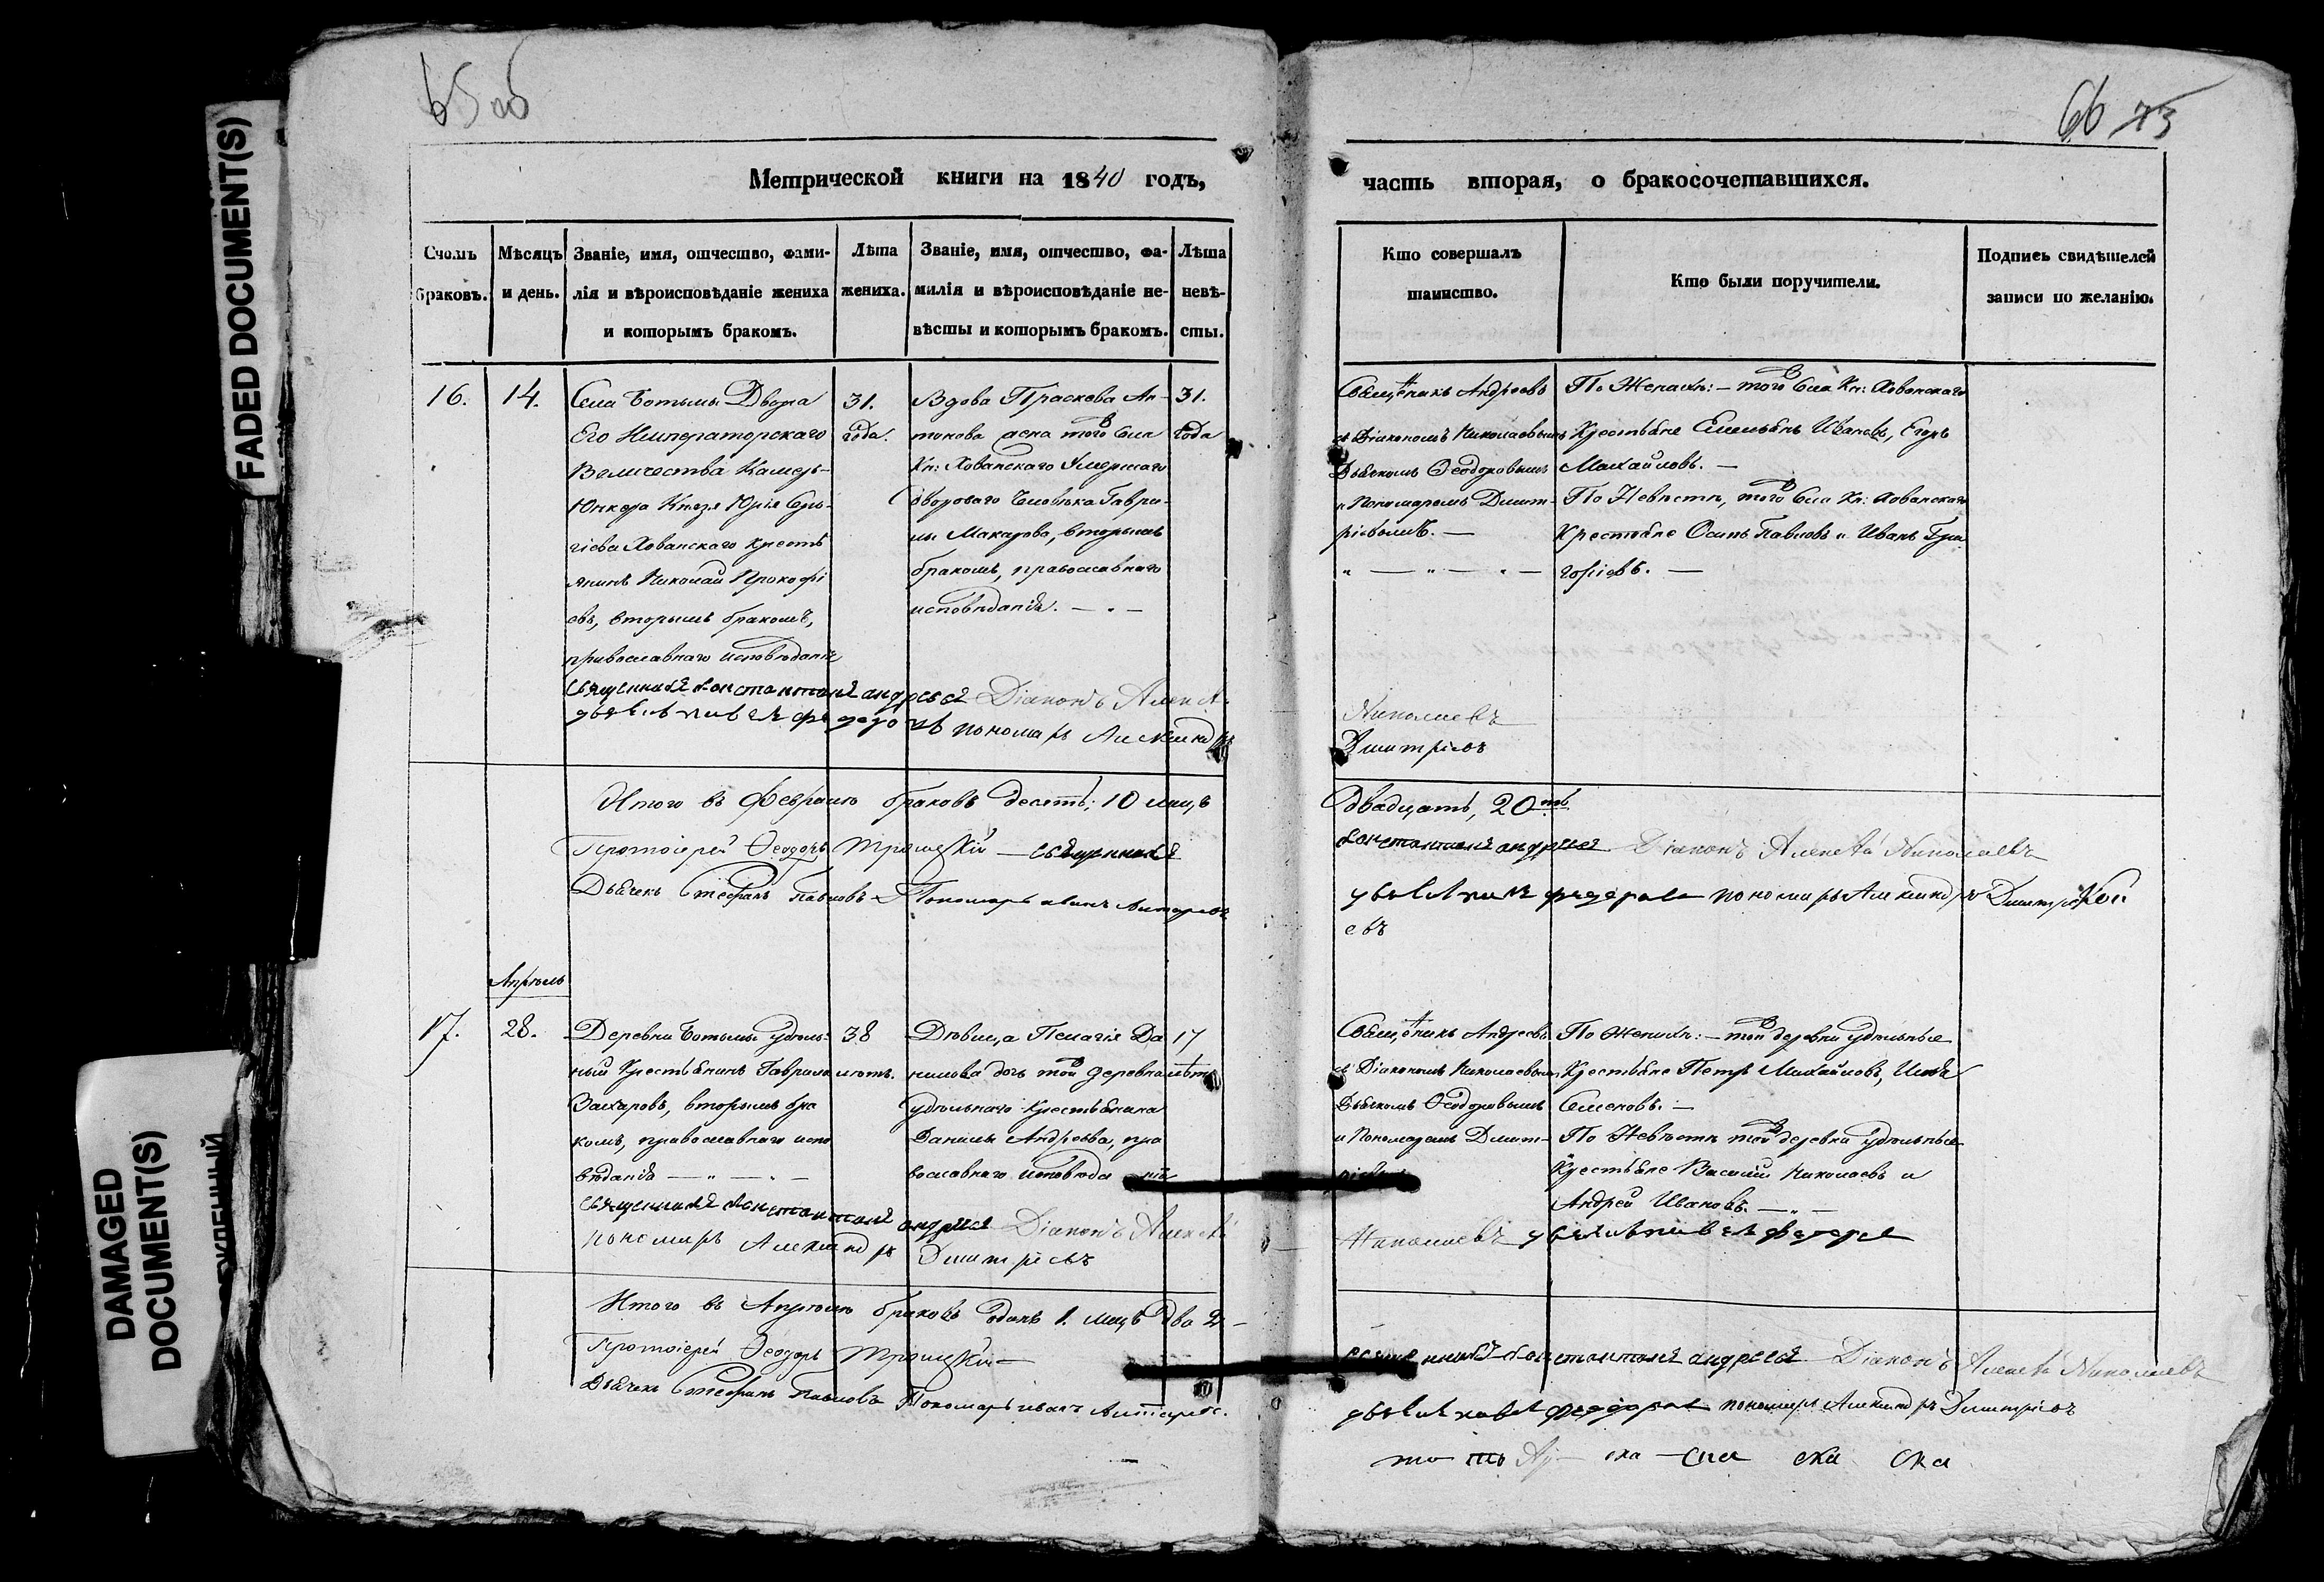 65 об
66 73
Метрической книги на 1840 годъ,
часть вторая, о бракосочетавшихся.
Счомъ браковъ.
Мѣсяцъ и день.
Званіе, имя, отчество, фами-
лія и вѣроисповѣданіе жениха
и которымъ бракомъ.
Лѣта
жениха.
Званіе, имя, отчество, фа-
милія и вѣроисповѣданіе не-
вѣсты и которымъ бракомъ.
Лѣта
невѣ-
сты.
Кто совершалъ
таинство.
Кто были поручители.
Подпись свидѣтелей
записи по желанію.
16.
14.
Села Ботьмы Двора
Его Императорскаго
Величества Камеръ-
Юнкера Князя Юрія Сер-
гіева Хованскаго крестья
янинъ Николай Прокофі
евъ, вторымъ бракомъ,
православнаго исповѣданія
31.
года.
Вдова Праскева Ан-
тонова жена того села
Кн: Хованскаго Умершаго
двороваго Человѣка Гаври-
лы Макарова, вторымъ
бракомъ, православнаго
исповѣданія. — „ —
31.
года
Священникъ Андреевъ
съ Діакономъ Николаевымъ
Дьячкомъ Ѳеодоровымъ
и Пономаремъ Дмит-
ріевымъ. —
„ — „ — „ —
По Женихѣ: – того села Кн: Хованскаго
Крестьяне Емельянъ Ивановъ, Егоръ
Михайловъ. —
По Невѣстѣ, того села Кн: Хованскаго
Крестьяне Осипъ Павловъ и Иванъ Гри
горіевъ. —
священникъ константинъ андреевъ Діаконъ Алексѣй
Николаевъ
дьячекъ павелъ федоровъ пономарь Александръ
Дмитріевъ
Итого въ Февралѣ браковъ десять: 10 лицъ
двадцать, 20ть
Протоіерей Ѳеодоръ Троицкій — священникъ
константинъ андреевъ Діаконъ Алексѣй Николаевъ
Дьячекъ Стефанъ Павловъ Пономарь иванъ
дьячекъ федоровъ пономарь Александръ Дмитрі
евъ
Апрѣль
17.
28.
Деревни Ботьмы удѣль-
ный Крестьянинъ Гаврила
Захаровъ, вторымъ бра
комъ, православнаго испо
вѣданія — „ — „ —
38
лѣтъ.
Дѣвица Пелагія Да
нилова дочь той деревни
удѣльнаго крестьянина
Данилы Андреева, пра
вославнаго исповѣда нія
17
лѣтъ
Священникъ Андреевъ
съ Діакономъ Николаевымъ
Дьячкомъ Ѳеодоровымъ
и Пономаремъ Дмит-
По Женихѣ: – той деревни удѣльные
Крестьяне Петръ Михайловъ, Илья
Семеновъ. —
По Невѣстѣ той деревни удѣльные
Крестьяне Василій Николаевъ и
Андрей Ивановъ. — „ —
священникъ константинъ андреевъ Діаконъ Алексѣй
Николаевъ дьячекъ павелъ федоров
пономарь Александръ Дмитріевъ
Итого въ Апрѣлѣ браковъ одинъ 1. лицъ два 2 —
Протоіерей Ѳеодоръ Троицкій —
священникъ константинъ андреевъ Діаконъ Алексѣй Николаевъ
Дьячекъ Стефанъ Павловъ Пономарь иванъ
дьячекъ павел федоров пономарь Александръ Дмитріевъ
ска ска
FADED DOCUMENT(S)
DAMAGED
DOCUMENT(S)